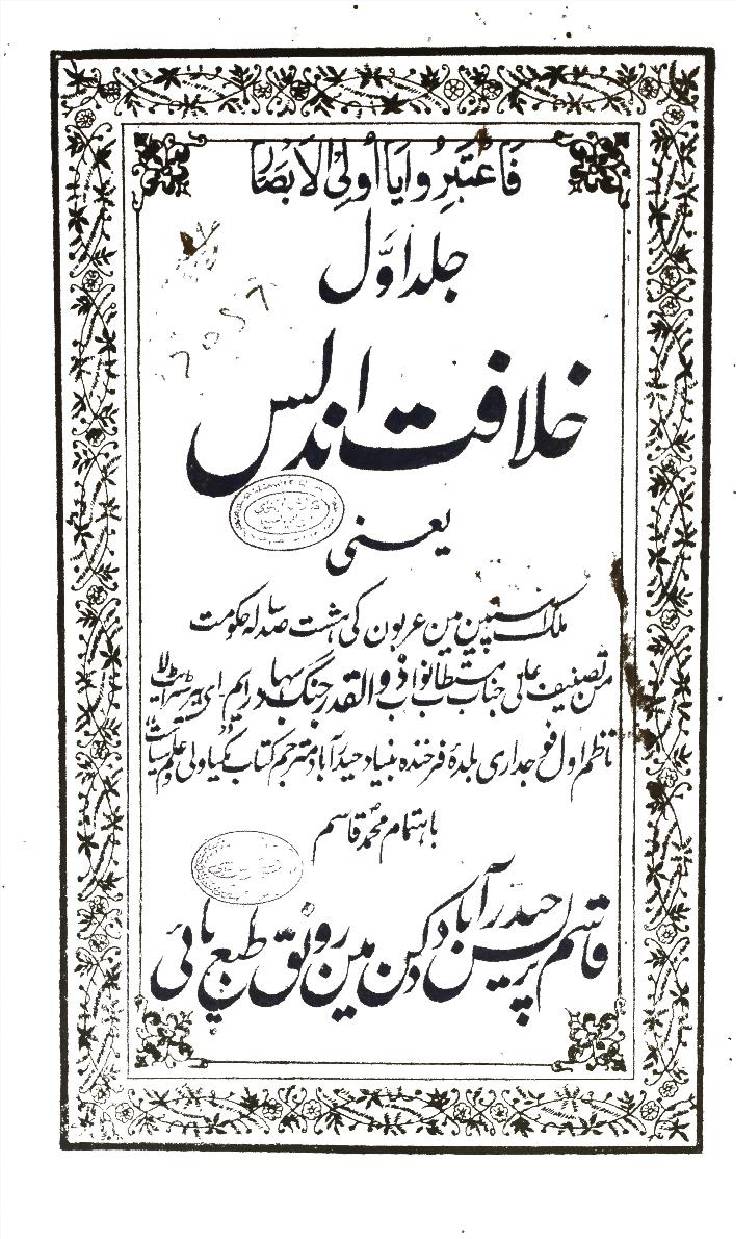 فَاعْتَبِرُوا يَا أُولِي الْأَبْصَار
جلد اوّل
خلافت اندلس
یعنی
ملک اسپین مین عربون کی ہشت صد سالہ حکومت
من تصنیف عالی جناب مستطاب نواب ذوالقدر جنگ بہادر ایم۔ اے بیرسٹر ایٹ لا
ناظم اول فوجداری بلدۂ فرخندہ بنیاد حیدرآباد مترجم کتاب گمیاولی علوم سیاست
باہتمام محمد قاسم
قاسم پریس حیدرآباد دکن مین رونق طبع پائی
7057